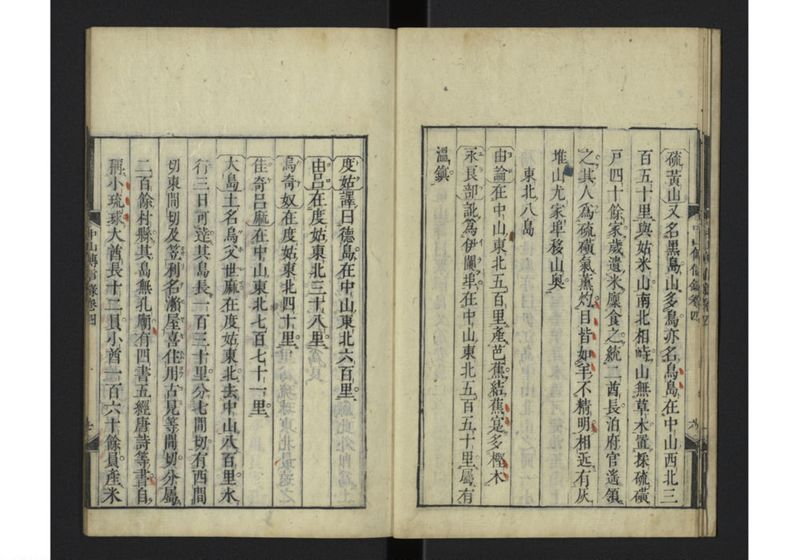 硫黄山又名黒島山多鳥亦名鳥島在中山西北三
百五十里與姑米山南北相峙山無草木置採硫磺
戸四十餘家歲遣米廩食之統二酋長泊府官遙領
之其人爲硫磺氣薫灼目皆如羊不精明相近有灰
堆山尤家埠移山奥
東北八島
由論在中山東北五百里產芭蕉結蕉寔多樫木
永良部訛爲伊闌埠在中山東北五百五十里屬有
溫鎮
度姑譯曰德島在中山東北六百里
由呂在度姑東北三十八里
烏奇奴在度姑東北四十里
佳奇呂麻在中山東北七百七十一里
大島土名烏父世麻在度姑東北去中山八百里水
行三日可達其島長一百三十里分七間切有西間
切東間切及笠利名瀬屋喜住用古見等間切分屬
二百餘村縣其島無孔廟有四書五經唐詩等書自
稱小琉球大酋長十二員小酋一百六十餘員產米
中山傳信錄卷四